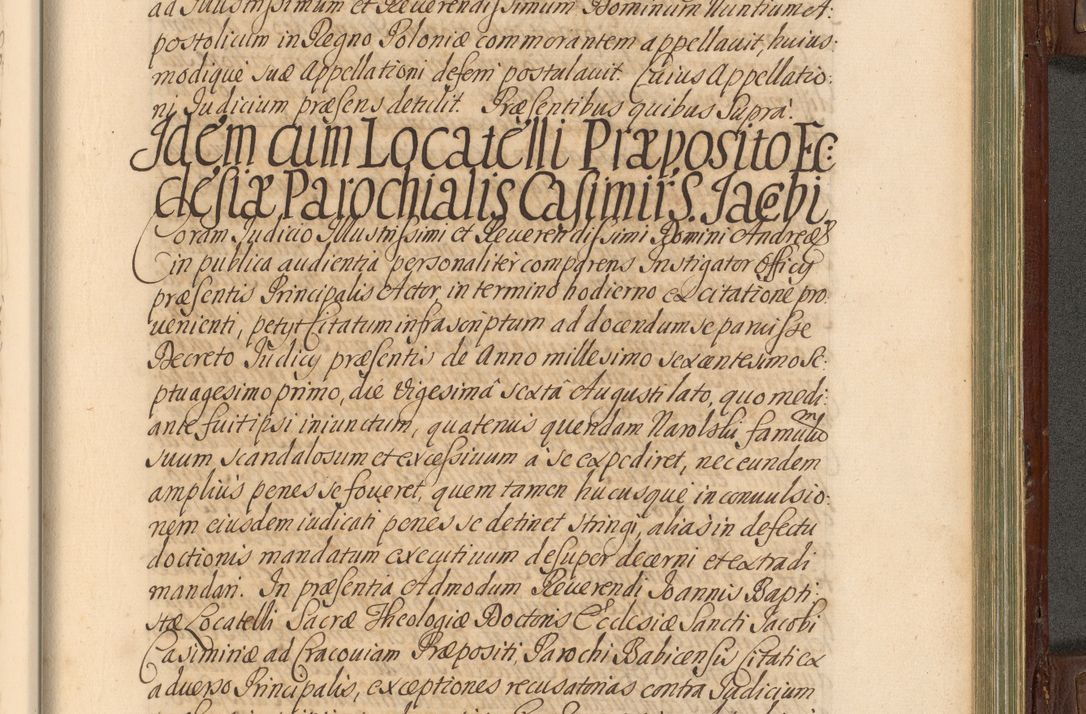 ad Illustrissimum et Reverendissimum Dominum Nuntium A:
postolicum in Regno Poloniæ commorantem appellauit, huius:
modique suæ Appellationi deferri postulauit. Cuius Appellatio:
ni Judicium præsens detulit. Præsentibus quibus Supra.
Idem cum Locatelli Præposito Ec:
clesiæ Parochialis Casimir: S. Jacobi
Coram Judicio Illustrissimi et Reuerendissimi Domini Andreæ
in publica audientia personaliter comparens Instigator Officij
præsentis Principalis Actor, in termino hodierno ex citatione pro
uenienti, petijt Citatum infrascriptum ad docendum se paruisse
Decreto Judicij præsentis de Anno millesimo sexcentesimo Se:
ptuagesimo primo, die vigesimâ sextâ Augusti lato, quo medi:
ante fuit ipsi iniunctum, quatenus quendam Narolski famulum
suum scandalosum et excessiuum à se expediret, nec eundem
amplius penes se foueret, quem tamen hucusque in conuulsio:
nem eiusdem iudicati penes se detinet stringi, alias in defectu
doctionis mandatum executiuum desuper decerni et extradi
mandari. In præsentia Admodum Reuerendi Joannis Bapti:
stæ Locatelli Sacræ Theologiæ Doctoris Ecclesiæ Sancti Jacobi
Casimiriæ ad Cracouiam Præpositi, Parochi Babicensis Citati ex
aduerso Principalis, exceptiones recusatorias contra Judicium